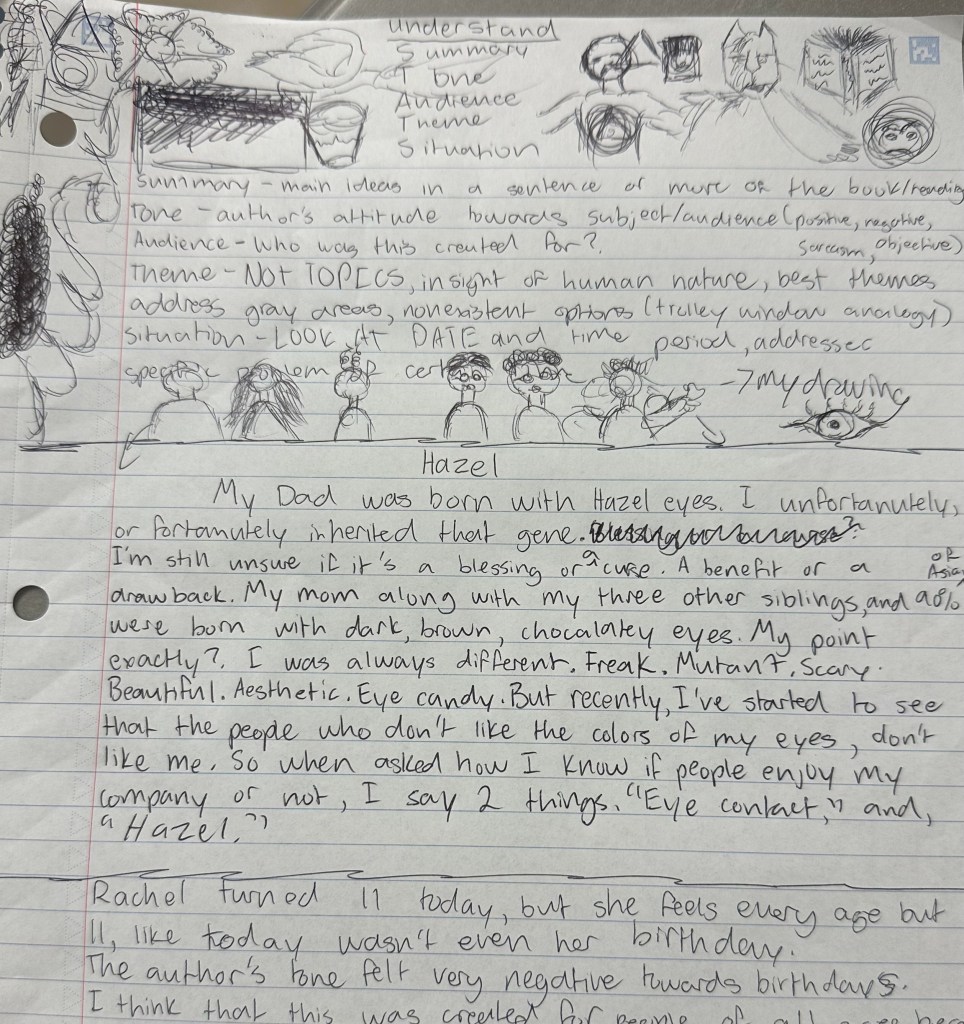 understand
Summary
Tone
Audience
Theme
Situation
Summary - main ideas in a sentence or more of the book/reading
Tone - author's attitude towards subject/audience (positive, negative,
Audience - Who was this created for? sarcasm, objective)
Theme - NOT TOPICS, insight of human nature, best themes
address gray areas, nonexistent options (trolley window analogy)
Situation - LOOK AT DATE and time period, addresses
specific problem for
-> my drawing
Hazel
My Dad was born with Hazel eyes. I unfortanutely,
or fortanutely inherited that gene.
I'm still unsure if it's a blessing or a curse. A benefit or a
drawback. My mom along with my three other siblings, and 90% of Asia
were born with dark, brown, chocalatey eyes. My point
exactly?. I was always different. Freak. Mutant. Scary.
Beautiful. Aesthetic. Eye candy. But recently, I've started to see
that the people who don't like the colors of my eyes, don't
like me. So when asked how I know if people enjoy my
company or not, I say 2 things. "Eye contact," and,
"Hazel."
Rachel turned 11 today, but she feels every age but
11, like today wasn't even her birthday.
The author's tone felt very negative towards birthdays.
I think that this was created for people of all ages bec